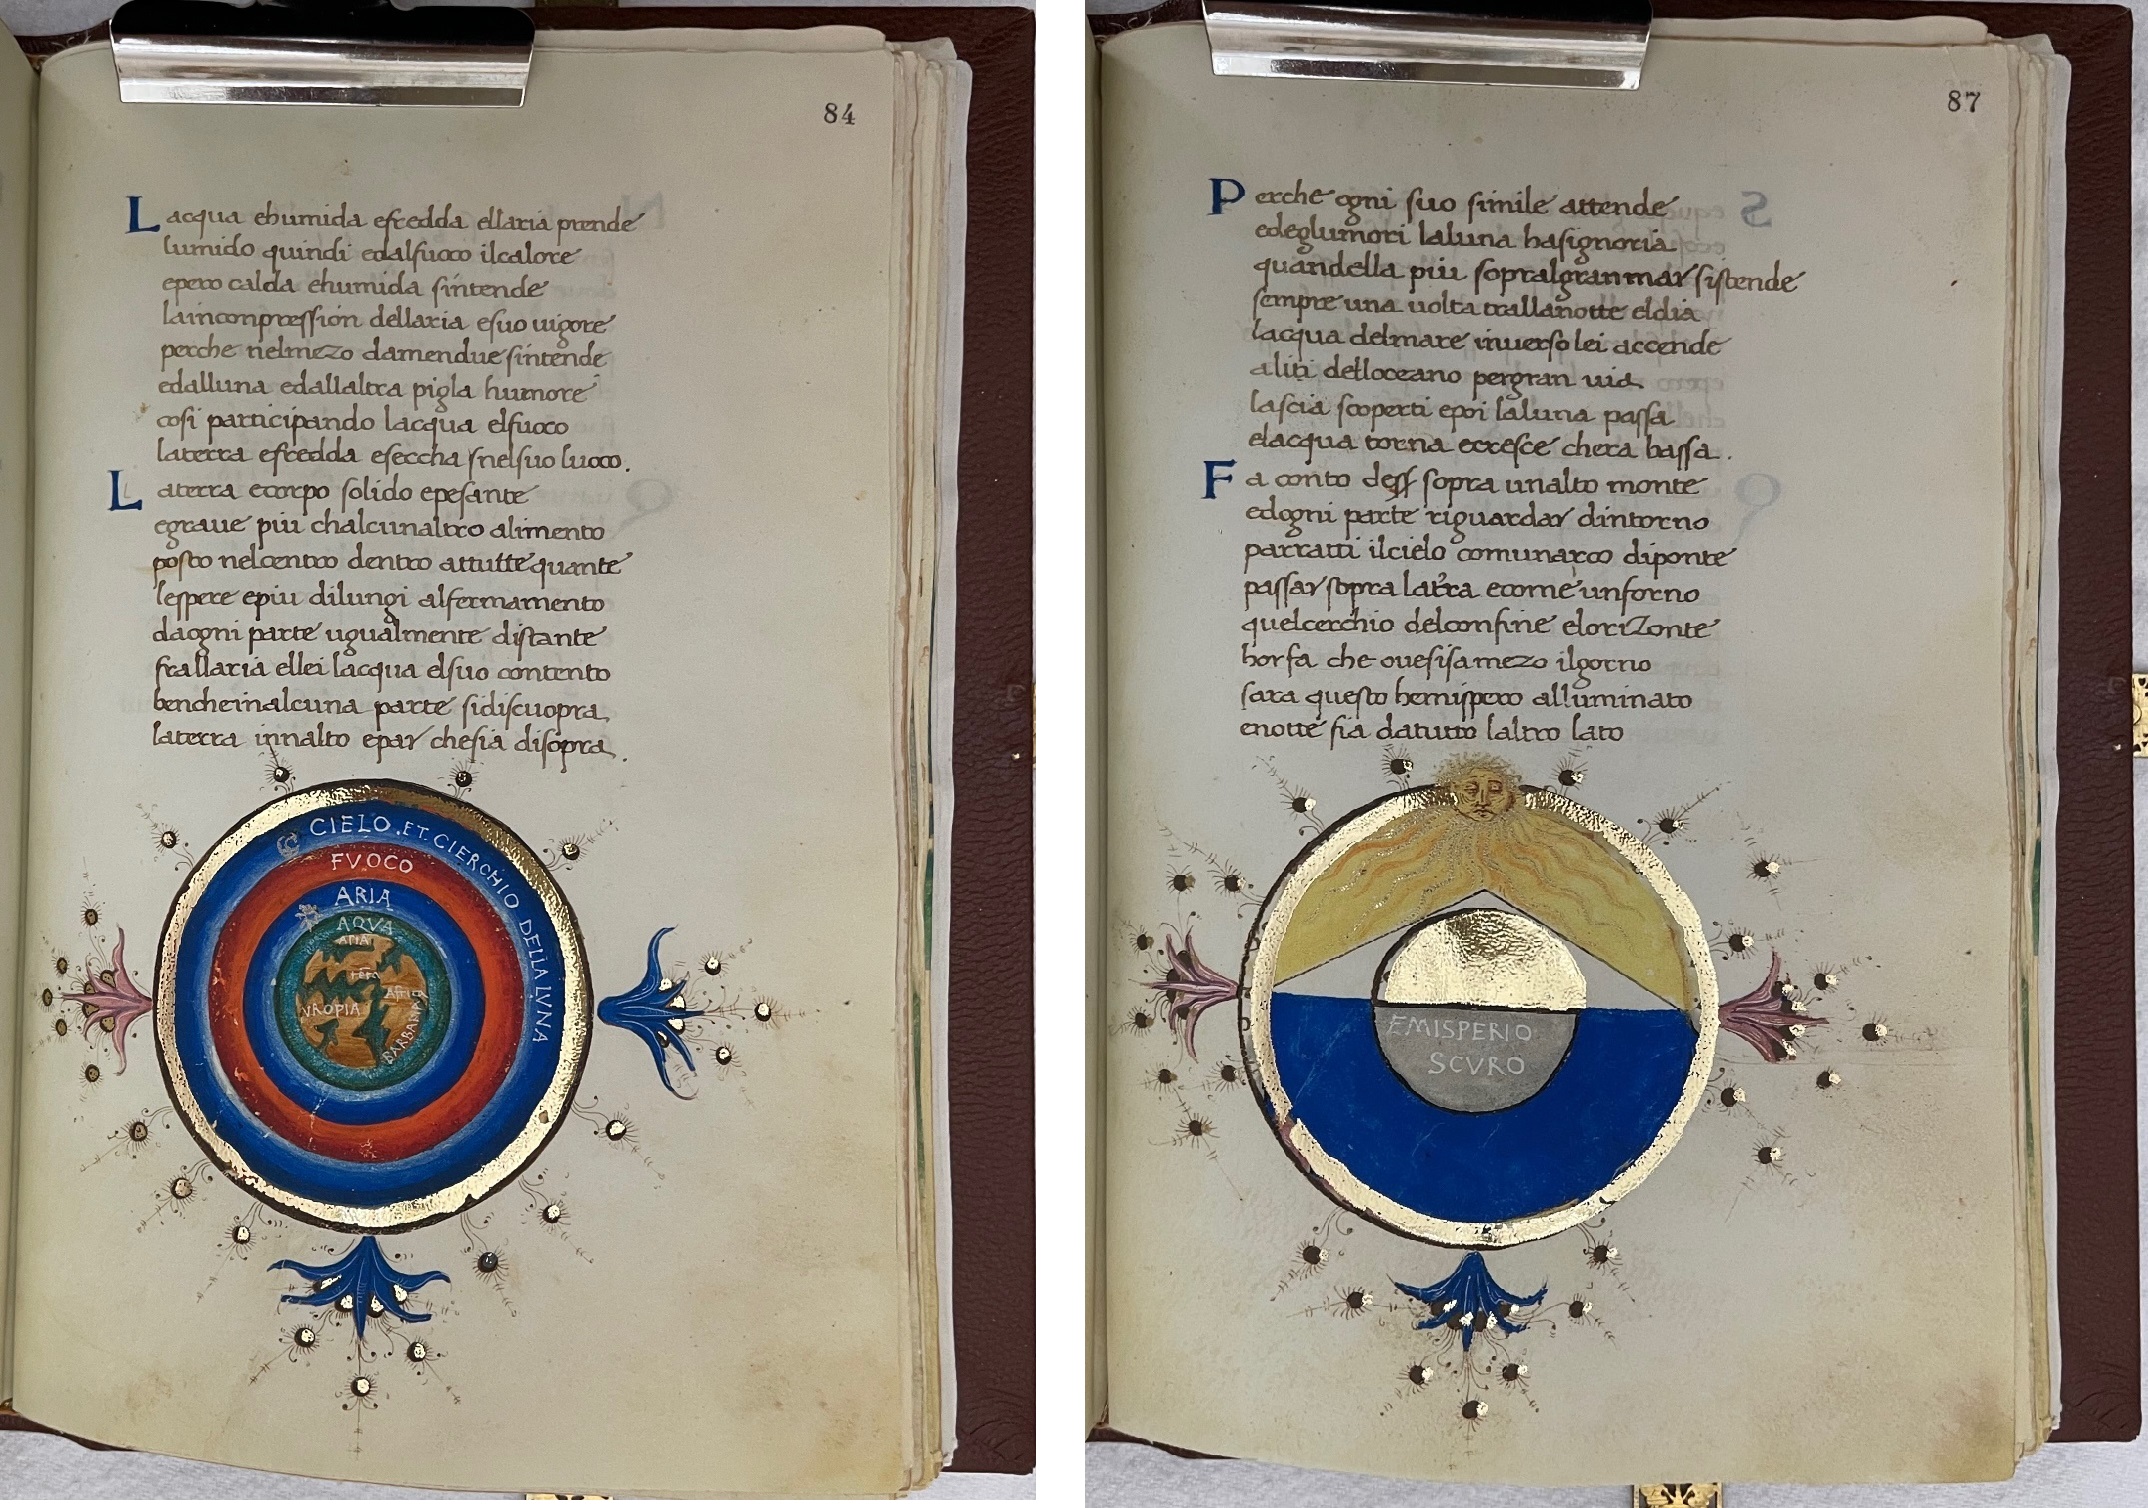 84
Lacqua ehumida efredda ellaria prende
lumido quindi edalfuoco ilcalore
epero calda ehumida sintende
lainconpression dellaria esuo uigore
perche nelmezo damendue sintende
edalluna edallaltra pigla humore
cosi participando lacqua elfuoco
laterra efredda eseccha snelsuo luoco.
Laterra ecorpo solido epesante
egraue piu chalcunaltro alimento
posto nelcentro dentro attutte quante
lespere epiu dilungi alfermamento
daogni parte ugualmente distante
frallaria ellei lacqua elsuo contento
bencheinalcuna parte sidiscuopra
laterra innalto epar chesia disopra.
CIELO. ET. CIERCHIO DELLA LVNA
FVOCO
ARIA
AQVA
VROPIA
Africa
BARBARIA
87
Perche ogni suo simile attende
edeglumori laluna hasignoria
quandella piu sopralgranmar sistende
sempre una uolta trallanotte eldia
lacqua delmare inuerso lei accende
aliti delloceano pergran uia
lascia scoperti epoi laluna passa
elacqua torna ecresce chera bassa.
Fa conto dess sopra unalto monte
edogni parte riguardar dintorno
parratti ilcielo comunarco diponte
passar sopra latra ecome unforno
quelcerchio delconfine elorizonte
hor fa che ouesisamezo ilgorno
sara questo hemispero alluminato
enotte sia datutto laltro lato
EMISPERIO
SCVRO